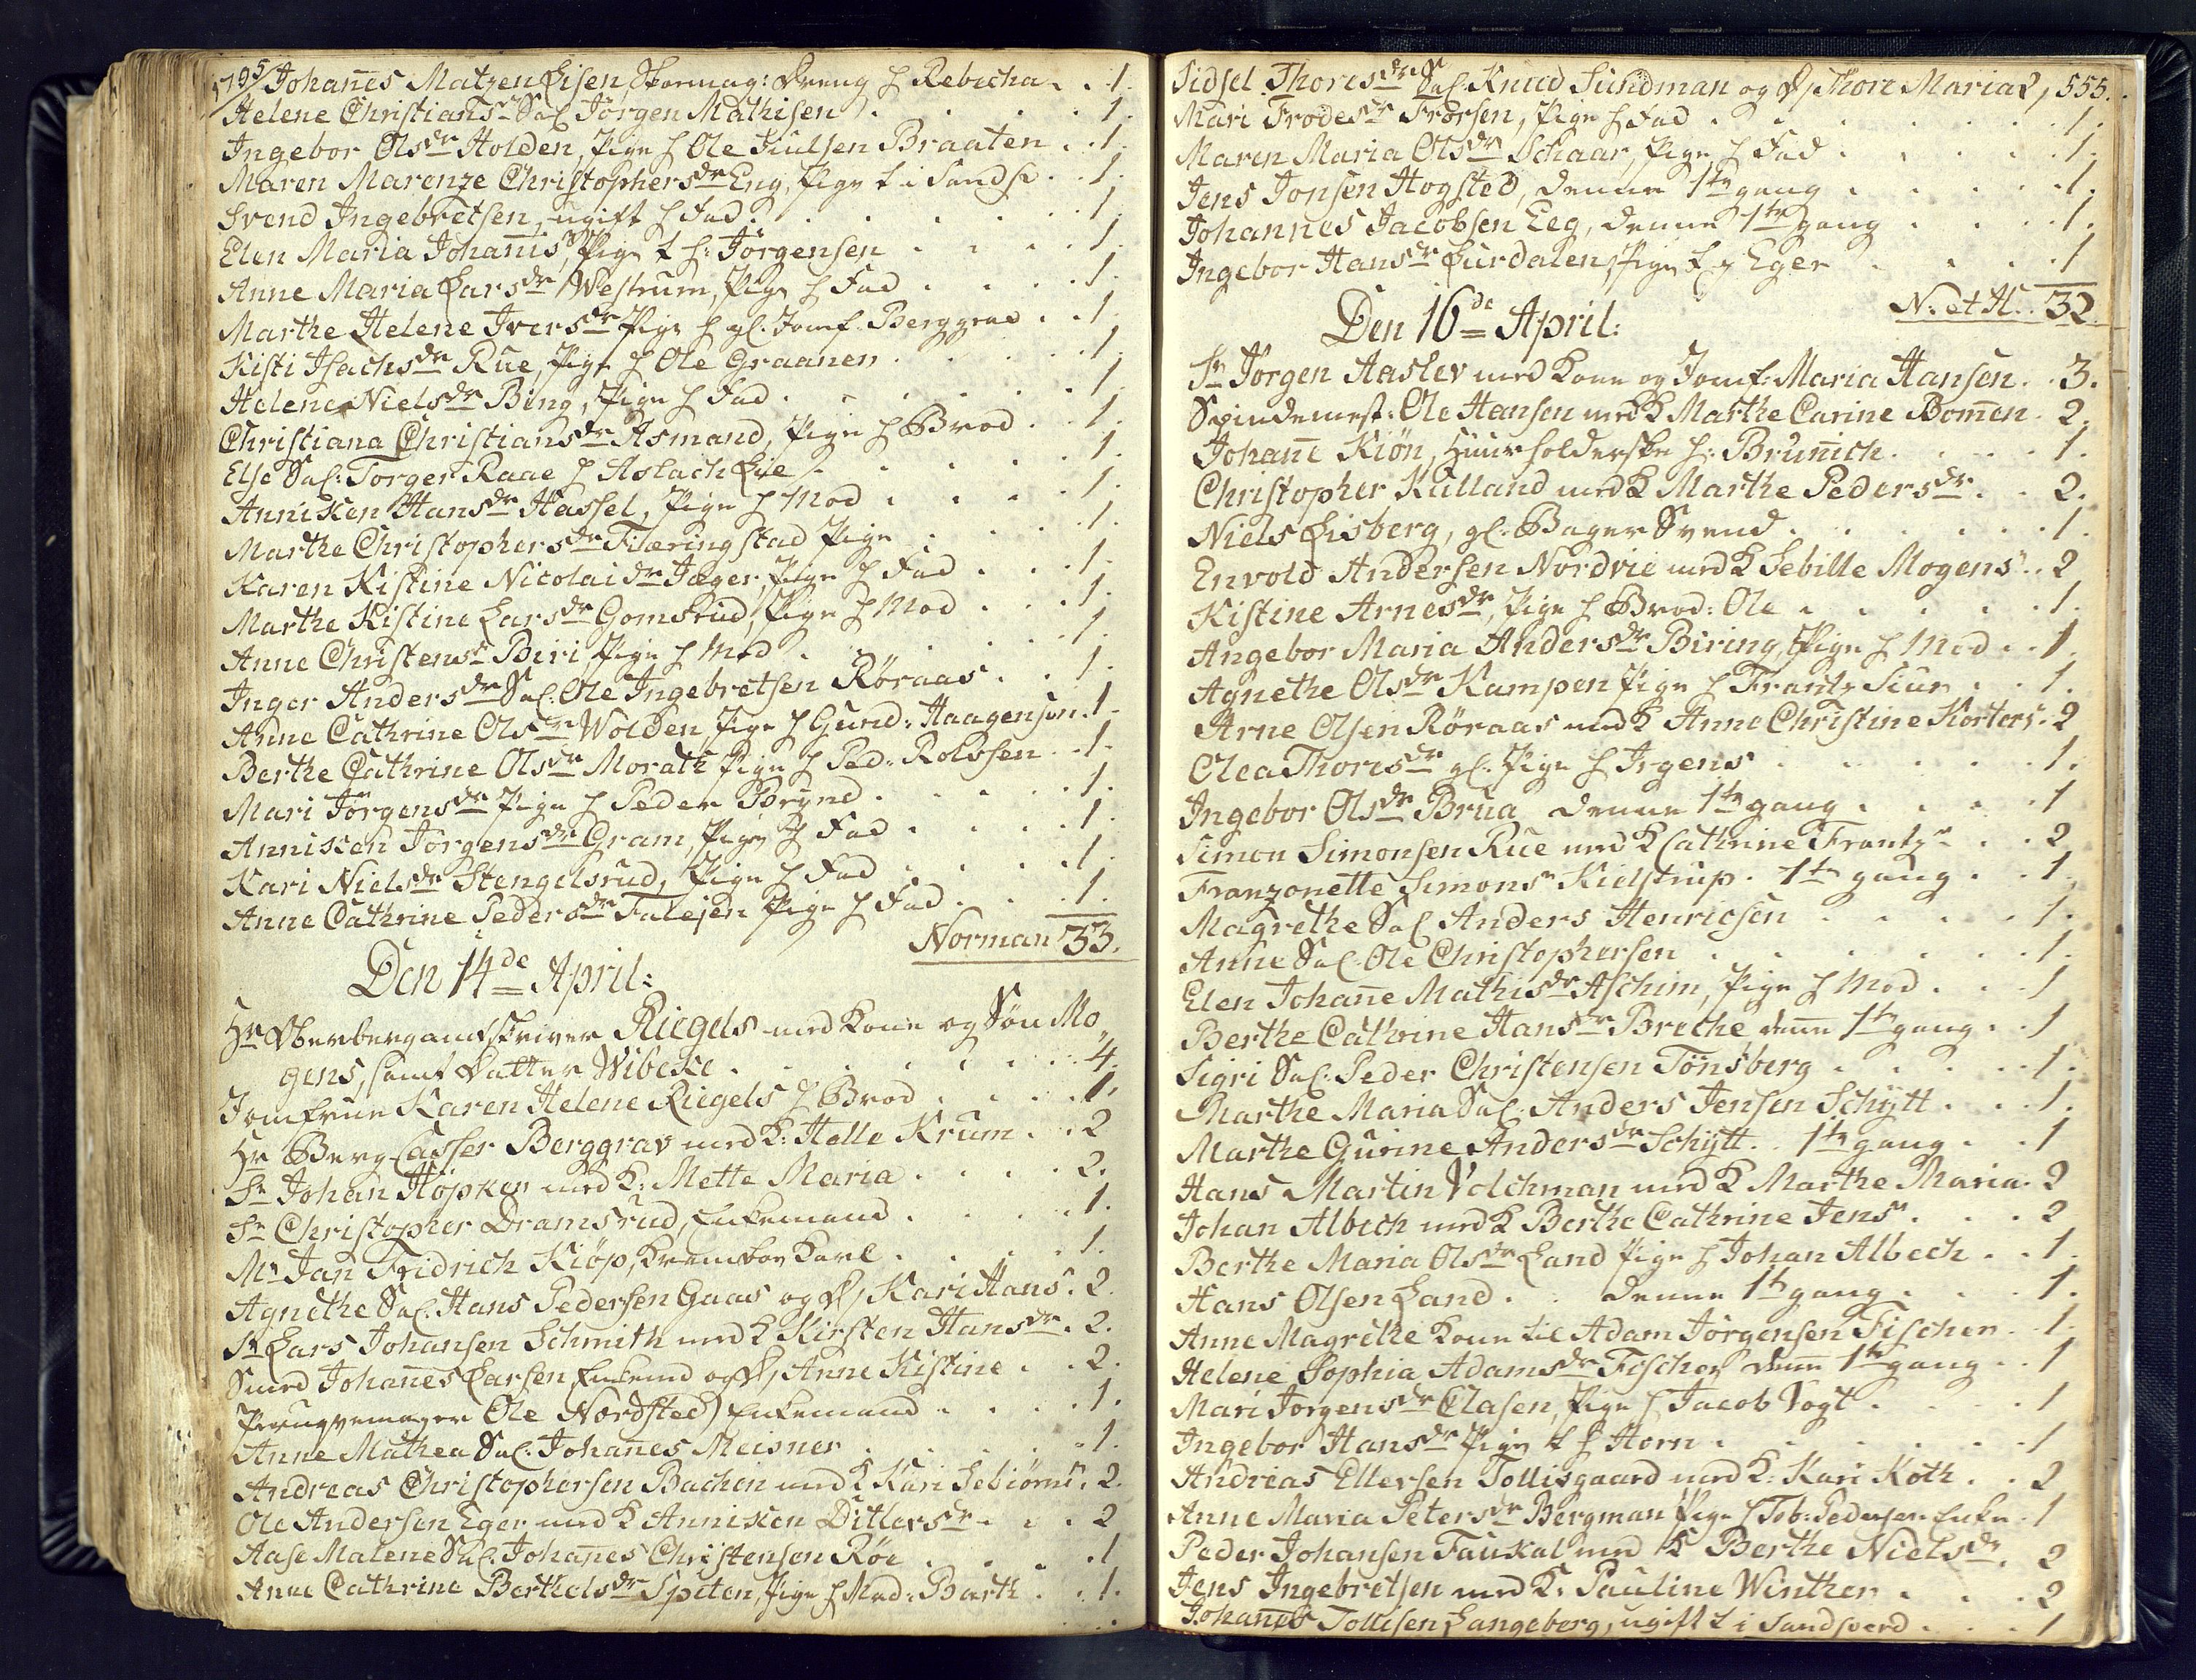 1795/ Johañes Matzen Lisen, Skomag: Dreng h Rebecha . . 1.
Helene Christiansdr Sal Jörgen Mathisen . . . . 1.
Ingebor Olsdr Holden, Pige h Ole Juulsen Braaten . . 1.
Maren Marenze Christophersdr Eng, Pige t i Sands . . 1.
Svend Ingebretsen, ugift h Fad . . . . 1.
Elen Maria Johañisdr, Pige t h: Jörgensen . . . 1.
Anne Maria Larsdr Westrum, Pige h Fad . . . 1.
Marthe Helene Iversdr Pige h gl. Jomf. Berggrav . . 1.
Kisti Isachsdr Rue, Pige h Ole Graanen . . . 1.
Helene Nielsdr Bing, Pige h Fad . . . . 1.
Christiana Christiansdr Asmand, Pige h Brod . . 1.
Else Sal: Torger Raae h Aslach Lie . . . 1.
Annichen Hansdr Hassel, Pige h Mod . . . 1.
Marthe Christophersdr Fiæringstad Pige . . . 1.
Karen Kistine Nicolaidr Jæger, Pige h Fad . . . 1.
Marthe Kistine Larsdr Gomsrud, Pige h Mod . . . 1.
Anne Christensdr Biri Pige h Mod . . . . 1.
Inger Andersdr Sal: Ole Ingebretsen Röraas . . 1.
Anne Cathrine Olsdr Wolden, Pige h Gund: Haagensen . 1.
Berthe Cathrine Olsdr Morath Pige h Ped: Rolvsen . . 1.
Mari Jörgensdr Pige h Peder Brynd . . . . 1.
Annichen Jörgensdr Gram, Pige h Fad . . . . 1.
Kari Nielsdr Stengelsrud, Pige h Fad . . . 1.
Anne Cathrine Pedersdr Falejen Pige h Fad . . . 1.
Norman 33.
Den 14de April:
Hr Oberbergamtskriver Riegels med Kone og Sön Mo-
gens, samt Datter Wibeke . . . . . . 4.
Jomfrue Karen Helene Riegels h Brod . . . 1.
Hr Berg Casser Berggrav med K: Helle Krum . . 2
Sr Johan Höpker med K: Mette Maria . . . 2.
Sr Christopher Dramsrud, Enkemand . . . . 1.
Mr Jan Fridrich Kiöp, Karl . . . 1.
Agnethe Sal. Hans Pedersen Gaas og D, Kari Hans . 2.
Sr Lars Johansen Schmith med K Kirsten Hansdr . 2.
Smed Johañes Larsen, Enkemd og D, Anne Kistine . . 2.
Peruqvemager Ole Nordsted, Enkemand . . . 1.
Anne Mathea Sal. Johañes Meisner . . . . 1.
Andreas Christophersen Bachen med K Kari . 2.
Ole Andersen Eger med K Annichen Ditlevsdr . . . 2
Aase Malene Sal. Johañes Christensen Röe . . . 1
Anne Cathrine Berthelsdr Spiten, Pige h Mad: Barth . . 1.
Sidsel Thoresdr Sal. Knud Sundman og D, Thore Maria 2, 555.
Mari Frodesdr Frorsen, Pige h Fad . . . . . 1.
Maren Maria Olsdr Schaar, Pige h Fad . . . . 1.
Jens Jonsen Hogsted, denne 1te gang . . . . 1.
Johannes Jacobsen Eeg, denne 1te gang . . . 1.
Ingebor Hansdr Lurdalen, Pige t p Eger . . . 1
N. et H. . 32.
Den 16de April:
Sr Jörgen Aaslev med Kone og Jomf: Maria Hansen . . 3.
Spindemest: Ole Hansen med K Marthe Carine Bomen . 2.
Johañe Kiön, Huusholderske h: Brünich . . . 1.
Christopher Kulland med K Marthe Pedersdr . . 2.
Niels Lisberg, gl. Bager Svend . . . . . 1.
Envold Andersen Nordvie med K Sebille Mogens . . 2
Kistine Arnesdr, Pige h Brod: Ole . . . . . 1.
Angebor Maria Andersdr Biring Pige h Mod . . 1.
Agnethe Olsdr Kampen Pige h Frantz Siur . . 1.
Arne Olsen Röraas med K Anne Christine Korters . 2
Olea Thoresdr gl. Pige h Irgens . . . . . 1.
Ingebor Olsdr Brua denne 1te gang . . . . 1
Simon Simonsen Rue med K Cathrine Frantzdr . . 2
Franzonette Simonsdr Kielstrup . 1te gang . . 1.
Magrethe Sal Anders Henricsen . . . . 1.
Anne Sal. Ole Christophersen . . . . . 1.
Elen Johañe Mathisdr Aschim, Pige h Mod . . . 1
Berthe Cathrine Hansdr Breche, denne 1te gang . . 1
Sigri Sal. Peder Christensen Tönsberg . . . . 1.
Marthe Maria Sal. Anders Jensen Schytt . . . 1.
Marthe Gurine Andersdr Schytt . . 1te gang . . 1
Hans Martin Volchman med K Marthe Maria . 2
Johan Albech med K Berthe Cathrine Jens . . . 2
Berthe Maria Olsdr Land Pige h Johan Albech . . 1.
Hans Olsen Land . . denne 1te gang . . . 1.
Anne Magrethe Kone til Adam Jörgensen Fischer . 1.
Helene Sophia Adamsdr Fischer denne 1te gang . . 1
Mari Jorgensdr Clasen, Pige h Jacob Vogt . . . 1
Ingebor Hansdr Pige t h Horn . . . . . 1
Andreas Ellevsen Tollisgaard med K: Kari Koth . . 2
Anne Maria Petersdr Bergman Pige h Tob: Pedersen Enke . 1
Peder Johansen Fauskal med K Berthe Nielsdr . 2
Jens Ingebretsen med K: Pauline Winther . . . 2
Johanes Tollisen Langeberg, ugift t i Sandsverd . . . 1